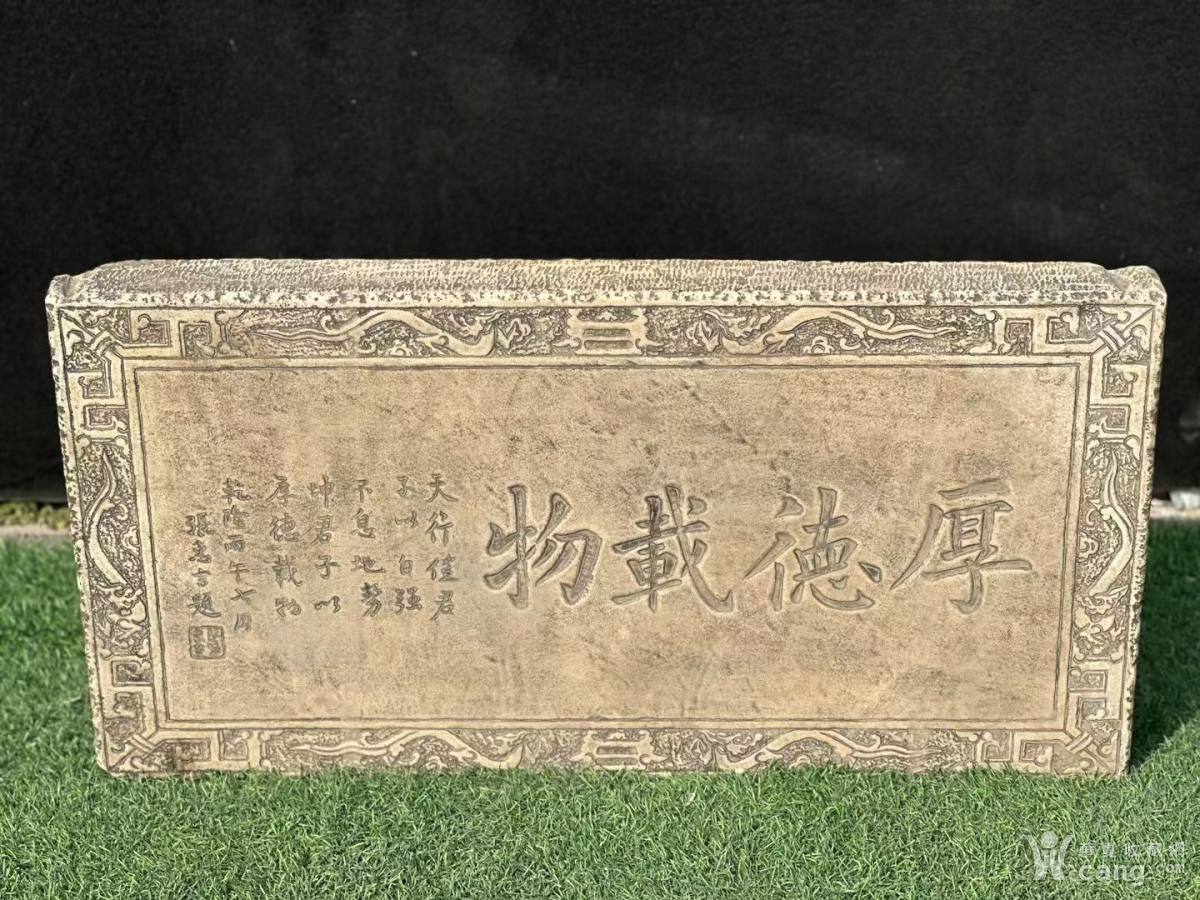 厚德載物
天行健君
子以自强
不息地勢
坤君子以
厚德載物
乾隆丙午七月
張言題
華夏收藏網
cang.com